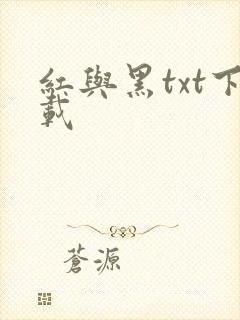 紅與黑txt下
載
蒼源